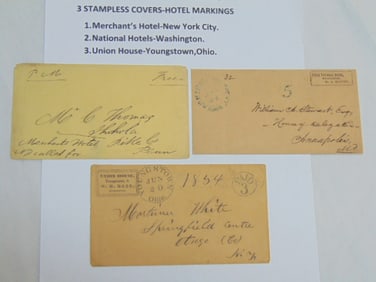 3 STAMPLESS COVERS-HOTEL MARKINGS
1.Merchant's Hotel-New York City.
2.National Hotels-Washington.
3.Union House-Youngstown,Ohio.
P. M.
Free
Mr C Thomas
Shohola
Merchants Hotel Pike Co
if called for Penn
32
5
William H. Stewart, Esq.
House of Delegates
Annapolis
Md
UNION HOUSE,
YOUNGSTOWN
JUN
20
OHIO
1854
PAID
3
Mortimer White
Springfield Centre
Otsego (Co)
N. Y.